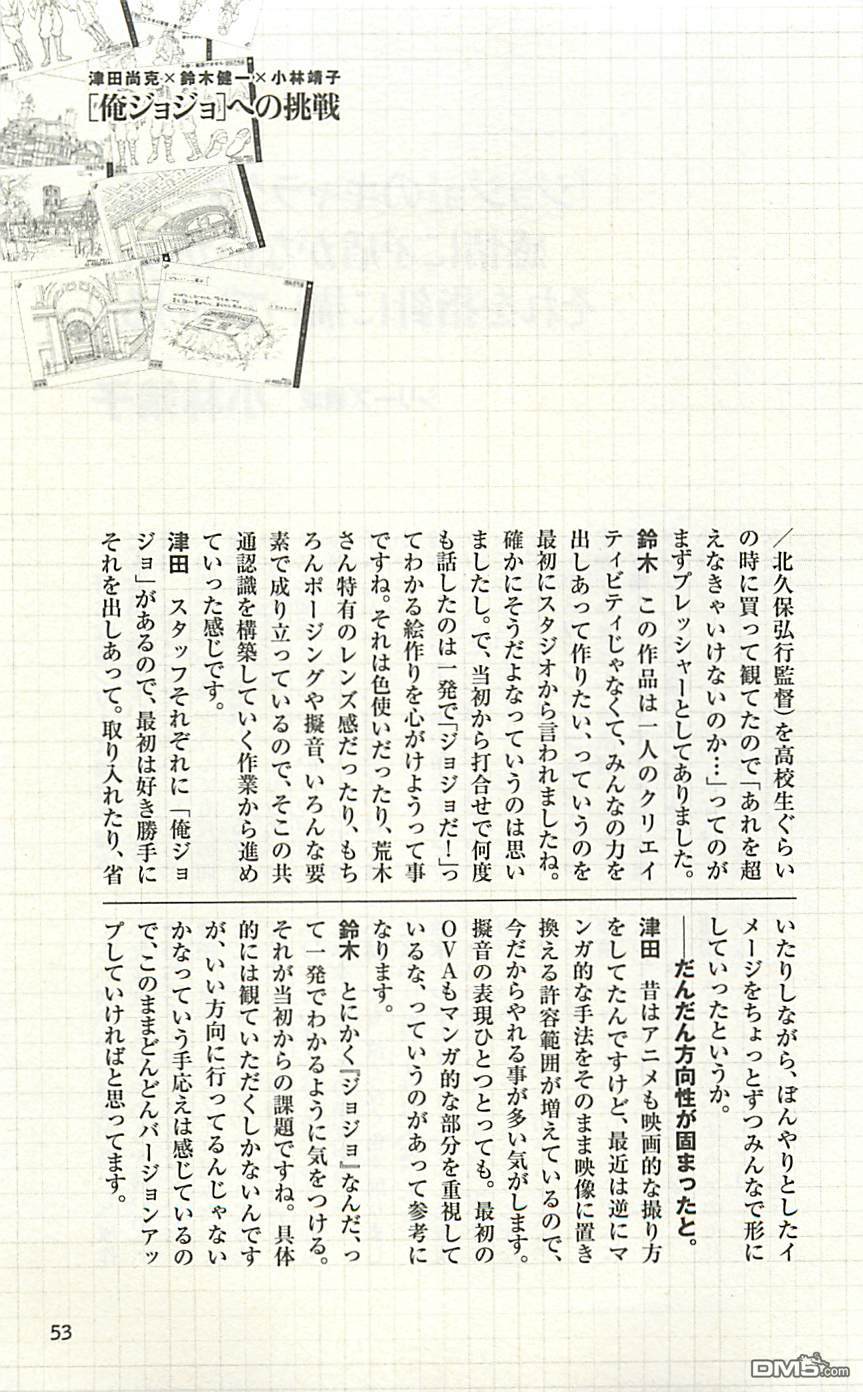 津田尚克×鈴木健一×小林靖子
[俺ジョジョ]への挑戦
／北久保弘行監督）を高校生ぐらい
の時に買って観てたので「あれを超
えなきゃいけないのか…」ってのが
まずプレッシャーとしてありました。
鈴木　この作品は一人のクリエイ
ティビティじゃなくて、みんなの力を
出しあって作りたい、っていうのを
最初にスタジオから言われましたね。
確かにそうだよなっていうのは思い
ましたし。で、当初から打合せで何度
も話したのは一発で「ジョジョだ！」っ
てわかる絵作りを心がけようって事
ですね。それは色使いだったり、荒木
さん特有のレンズ感だったり、もち
ろんポージングや擬音、いろんな要
素で成り立っているので、そこの共
通認識を構築していく作業から進め
ていった感じです。
津田　スタッフそれぞれに「俺ジョ
ジョ」があるので、最初は好き勝手に
それを出しあって。取り入れたり、省
いたりしながら、ぼんやりとしたイ
メージをちょっとずつみんなで形に
していったというか。
──だんだん方向性が固まったと。
津田　昔はアニメも映画的な撮り方
をしてたんですけど、最近は逆にマ
ンガ的な手法をそのまま映像に置き
換える許容範囲が増えているので、
今だからやれる事が多い気がします。
擬音の表現ひとつとっても。最初の
OVAもマンガ的な部分を重視して
いるな、っていうのがあって参考に
なります。
鈴木　とにかく『ジョジョ』なんだ、っ
て一発でわかるように気をつける。
それが当初からの課題ですね。具体
的には観ていただくしかないんです
が、いい方向に行ってるんじゃない
かなっていう手応えは感じているの
で、このままどんどんバージョンアッ
プしていければと思ってます。
53
DM5.com